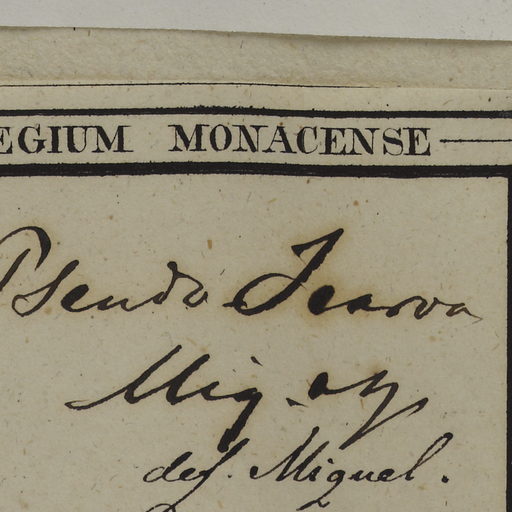 EGIUM MONACENSE
Pseudo Icaroa
Miq.
det. Miquel.